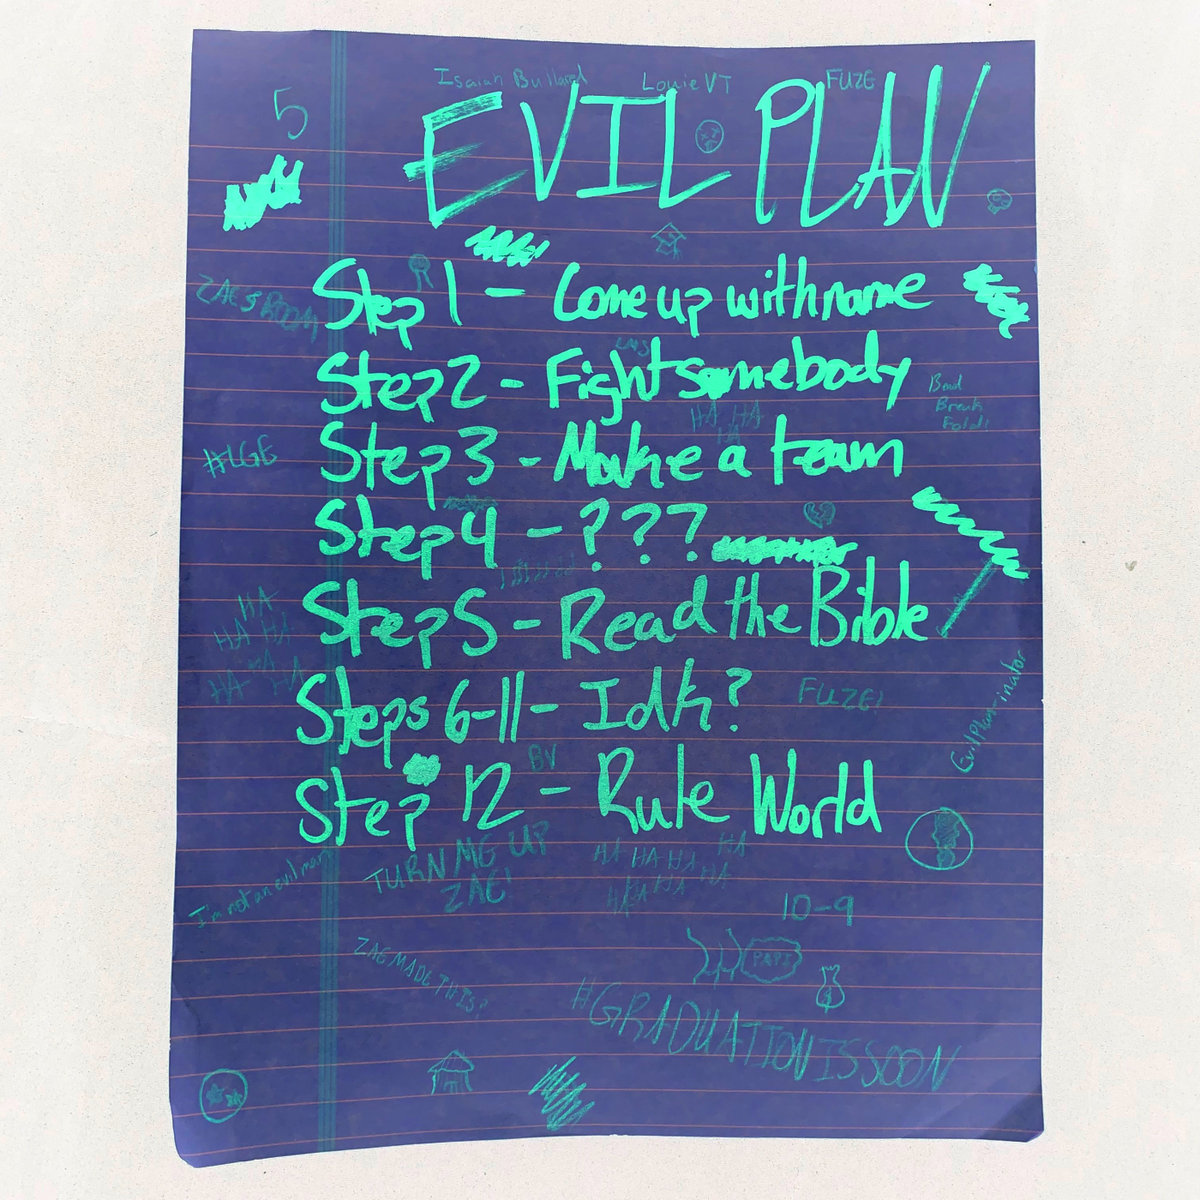 Isaiah Bullard
LouieVT
FUZE
5
EVIL PLAN
ZAE'S ROOM
Step 1 - Come up with name
Step 2 - Fight somebody
Bad
Break
Fold!
HA HA
HA
#LGE
Step 3 - Make a team
Step 4 - ???
Step 5 - Read the Bible
HA
HA HA
HA
HA HA
Steps 6-11 - Idk?
FUZE!
Evil Plan-inator
BV
Step 12 - Rule World
I'm not an evil man
TURN MG UP
ZAE!
HA HA HA HA
HA HA HA
10-9
ZAE MADE THIS?
PAPI
#GRADUATIONISSOON